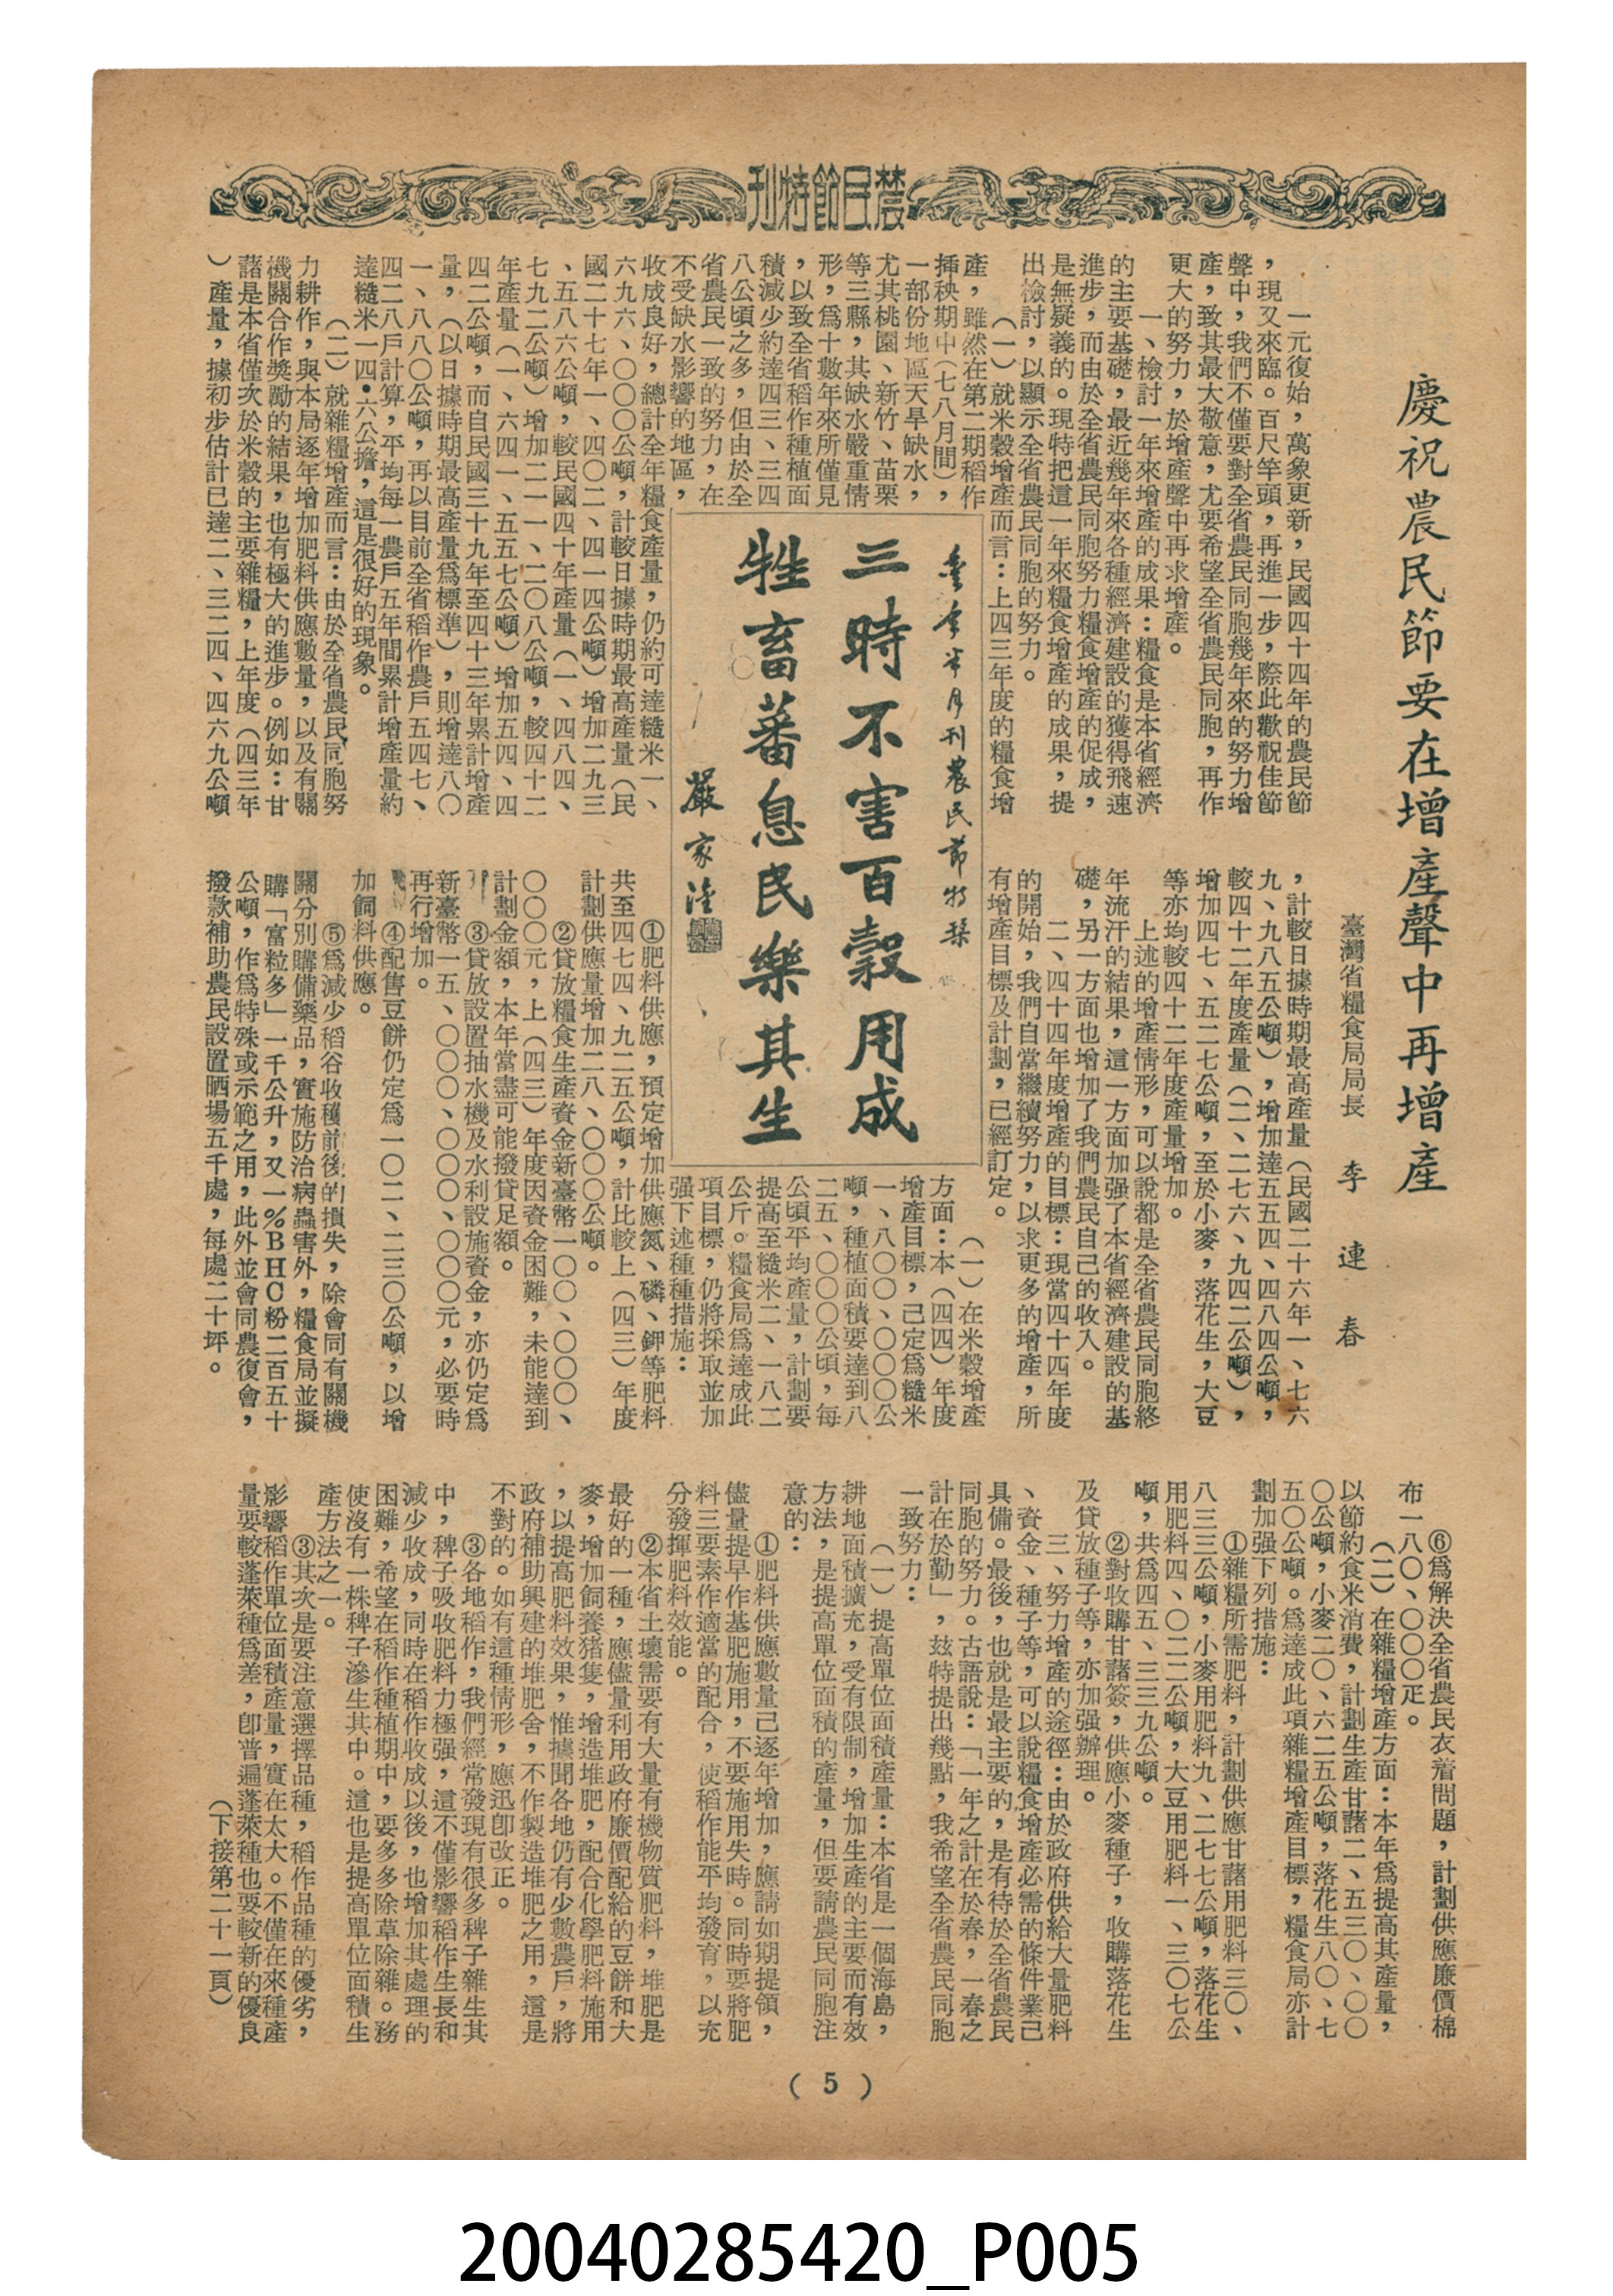 農民節特刊
慶祝農民節要在增產聲中再增產
臺灣省糧食局局長 李連春
一元復始，萬象更新，民國四十四年的農民節
，現又來臨。百尺竿頭，再進一步，際此歡祝佳節
聲中，我們不僅要對全省農民同胞幾年來的努力增
產，致其最大敬意，尤要希望全省農民同胞，再作
更大的努力，於增產聲中再求增產。
一、檢討一年來增產的成果：糧食是本省經濟
的主要基礎，最近幾年來各種經濟建設的獲得飛速
進步，而由於全省農民同胞努力糧食增產的促成，
是無疑義的。現特把這一年來糧食增產的成果，提
出檢討，以顯示全省農民同胞的努力。
（一）就米穀增產而言：上四三年度的糧食增
產，雖然在第二期稻作
挿秧期中（七八月間），
一部份地區天旱缺水，
尤其桃園、新竹、苗栗
等三縣，其缺水嚴重情
形，爲十數年來所僅見
，以致全省稻作種植面
積減少約達四三、三四
八公頃之多，但由於全
省農民一致的努力，在
不受缺水影響的地區，
收成良好，總計全年糧食產量，仍約可達糙米一、
六九六、〇〇〇公噸，計較日據時期最高產量（民
國二十七年一、四〇二、四一四公噸）增加二九三
、五八六公噸，較民國四十年產量（一、四八四、
七九二公噸）增加二一一、二〇八公噸，較四十二
年產量（一、六四一、五五七公噸）增加五四、四
四二公噸，而自民國三十九年至四十三年累計增產
量，（以日據時期最高產量爲標準），則增達八〇
一、八八〇公噸，再以目前全省稻作農戶五四七、
四二八戶計算，平均每一農戶五年間累計增產量約
達糙米一四•六公擔，這是很好的現象。
（二）就雜糧增產而言：由於全省農民同胞努
力耕作，與本局逐年增加肥料供應數量，以及有關
機關合作獎勵的結果，也有極大的進步。例如：甘
藷是本省僅次於米穀的主要雜糧，上年度（四三年
）產量，據初步估計已達二、三二四、四六九公噸
豐年半月刊農民節特栞
三時不害百穀用成
牲畜蕃息民樂其生
嚴家淦
，計較日據時期最高產量（民國二十六年一、七六
九、九八五公噸），增加達五五四、四八四公噸，
較四十二年度產量（二、二七六、九四二公噸），
增加四七、五二七公噸，至於小麥，落花生，大豆
等亦均較四十二年度產量增加。
上述的增產情形，可以說都是全省農民同胞終
年流汗的結果，這一方面加强了本省經濟建設的基
礎，另一方面也增加了我們農民自己的收入。
二、四十四年度增產的目標：現當四十四年度
的開始，我們自當繼續努力，以求更多的增產，所
有增產目標及計劃，已經訂定。
（一）在米穀增產
方面：本（四四）年度
增產目標，已定爲糙米
一、八〇〇、〇〇〇公
噸，種植面積要達到八
二五、〇〇〇公頃，每
公頃平均產量，計劃要
提高至糙米二、一八二
公斤。糧食局爲達成此
項目標，仍將採取並加
强下述種種措施：
①肥料供應，預定增加供應氮、磷、鉀等肥料
共至四七四、九二五公噸，計比較上（四三）年度
計劃供應量增加二八、〇〇〇公噸。
②貸放糧食生產資金新臺幣一〇〇、〇〇〇、
〇〇〇元，上（四三）年度因資金困難，未能達到
計劃金額，本年當盡可能撥貸足額。
③貸放設置抽水機及水利設施資金，亦仍定爲
新臺幣一五、〇〇〇、〇〇〇、〇〇〇元，必要時
再行增加。
④配售豆餅仍定爲一〇二、二三〇公噸，以增
加飼料供應。
⑤爲減少稻谷收穫前後的損失，除會同有關機
關分別購備藥品，實施防治病蟲害外，糧食局並擬
購「富粒多」一千公升，又一%BHC粉二百五十
公噸，作爲特殊或示範之用，此外並會同農復會，
撥款補助農民設置晒場五千處，每處二十坪。
⑥爲解決全省農民衣着問題，計劃供應廉價棉
布一八〇、〇〇〇疋。
（二）在雜糧增產方面：本年爲提高其產量，
以節約食米消費，計劃生產甘藷二、五三〇、〇〇
〇公噸，小麥二〇、六二五公噸，落花生八〇、七
五〇公噸。爲達成此項雜糧增產目標，糧食局亦計
劃加强下列措施：
①雜糧所需肥料，計劃供應甘藷用肥料三〇、
八三三公噸，小麥用肥料九、二七七公噸，落花生
用肥料四、〇二二公噸，大豆用肥料一、三〇七公
噸，共爲四五、三三九公噸。
②對收購甘藷簽，供應小麥種子，收購落花生
及貸放種子等，亦加强辦理。
三、努力增產的途徑：由於政府供給大量肥料
、資金、種子等，可以說糧食增產必需的條件業已
具備。最後，也就是最主要的，是有待於全省農民
同胞的努力。古語說：「一年之計在於春，一春之
計在於勤」，茲特提出幾點，我希望全省農民同胞
一致努力：
（一）提高單位面積產量：本省是一個海島，
耕地面積擴充，受有限制，增加生產的主要而有效
方法，是提高單位面積的產量，但要請農民同胞注
意的：
①肥料供應數量已逐年增加，應請如期提領，
儘量提早作基肥施用，不要施用失時。同時要將肥
料三要素作適當的配合，使稻作能平均發育，以充
分發揮肥料效能。
②本省土壤需要有大量有機物質肥料，堆肥是
最好的一種，應儘量利用政府廉價配給的豆餅和大
麥，增加飼養猪隻，增造堆肥，配合化學肥料施用
，以提高肥料效果，惟據聞各地仍有少數農戶，將
政府補助興建的堆肥舍，不作製造堆肥之用，這是
不對的。如有這種情形，應迅卽改正。
③各地稻作，我們經常發現有很多稗子雜生其
中，稗子吸收肥料力極强，這不僅影響稻作生長和
減少收成，同時在稻作收成以後，也增加其處理的
困難，希望在稻作種植期中，要多多除草除雜。務
使沒有一株稗子滲生其中。這也是提高單位面積生
產方法之一。
③其次是要注意選擇品種，稻作品種的優劣，
影響稻作單位面積產量，實在太大。不僅在來種產
量要較蓬萊種爲差，卽普遍蓬萊種也要較新的優良
（下接第二十一頁）
( 5 )
20040285420_P005